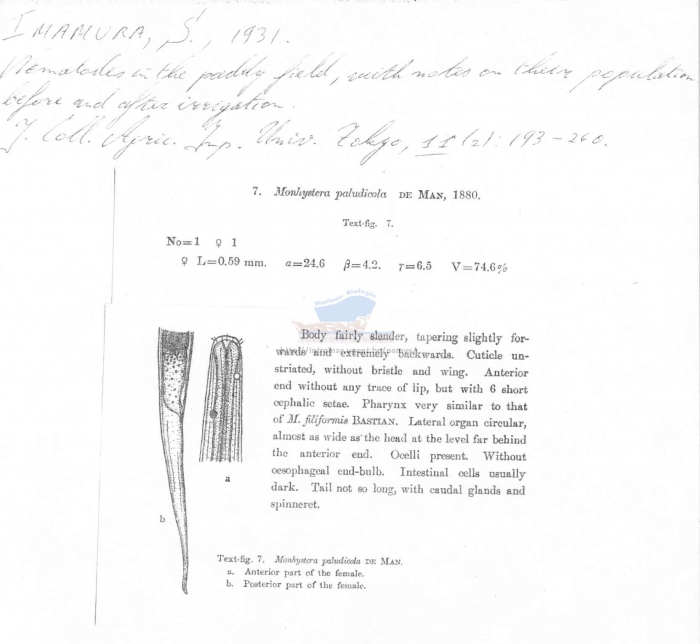 IMAMURA, S., 1931.
Nematodes in the paddy field, with notes on their population
before and after irrigation.
J. Coll. Agric. Imp. Univ. Tokyo, 11 (2): 193-260.
7. Monhystera paludicola DE MAN, 1880.
Text-fig. 7.
No=1 ♀ 1
♀ L=0.59 mm. α=24.6 β=4.2. γ=6.5 V=74.6%
Marine Biologie
Body fairly slender, tapering slightly for-
wards and extremely backwards. Cuticle un-
striated, without bristle and wing. Anterior
end without any trace of lip, but with 6 short
cephalic setae. Pharynx very similar to that
of M. filiformis BASTIAN. Lateral organ circular,
almost as wide as the head at the level far behind
the anterior end. Ocelli present. Without
oesophageal end-bulb. Intestinal cells usually
dark. Tail not so long, with caudal glands and
spinneret.
a
b
Text-fig. 7. Monhystera paludicola DE MAN.
a. Anterior part of the female.
b. Posterior part of the female.